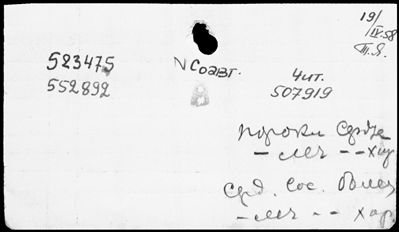 19/
IV.58
523475
552892
N Соавт.
Чит.
507919
пороки Сердца
– леч – – хир
Срд. Сос. болез
– леч – – хир.